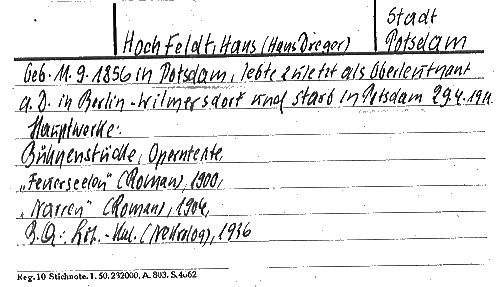 Stadt
Hochfeldt, Hans (Hans Dreger) Potsdam
Geb. 11.9.1856 in Potsdam, lebte zuletzt als Oberleutnant
a. D. in Berlin-Wilmersdorf und starb in Potsdam 29.4.19
Hauptwerke:
Bühnenstücke, Operntexte,
„Feuerseelen" (Roman), 1900,
„Narren" (Roman), 1904,
(Nekrolog), 1936
Reg. 10 Stichnote. 1. 50. 232000, A. 803. S. 4662